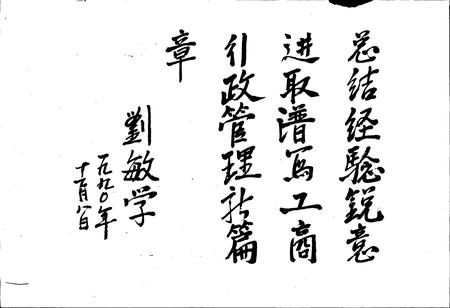 总结经驗鋭意
进取谱写工商
行政管理新篇
章
劉敏学
一九九〇年
十一月八日